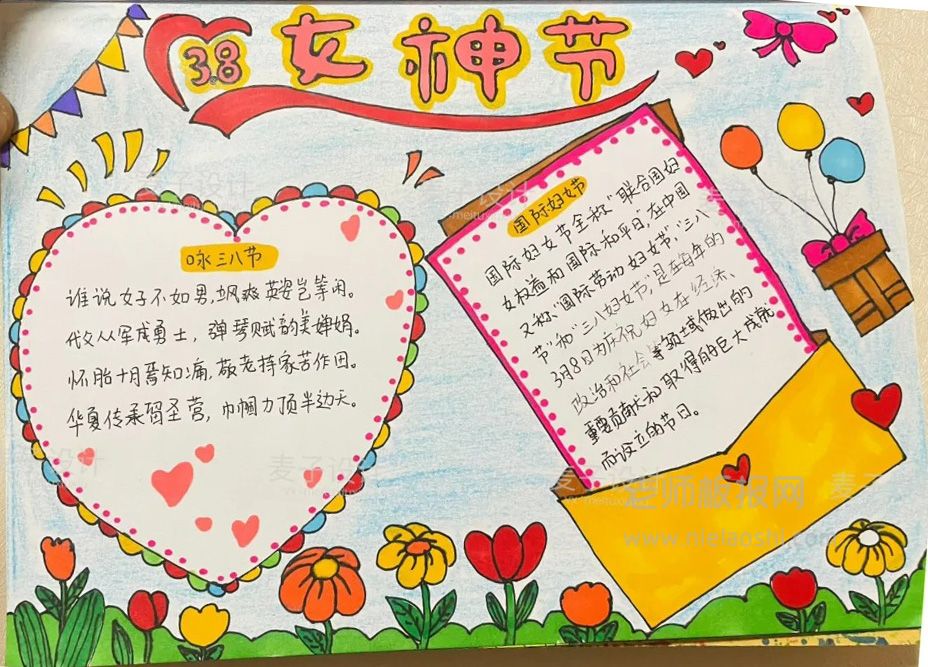 3.8
女神节
咏三八节
谁说女子不如男,飒爽英姿岂等闲。
代父从军成勇士,弹琴赋韵美婵娟。
怀胎十月焉知痛,敬老持家苦作田。
华夏传承留圣营,巾帼力顶半边天。
国际妇女节
国际妇女节全称"联合国妇
女权益和国际和平日",在中国
又称"国际劳动妇女节","三八
节"和"三八妇女节",是在每年的
3月8日为庆祝妇女在经济、
政治和社会等领域做出的
重要贡献和取得的巨大成就
而设立的节日。
老师板报网
www.nielaoshi.com
麦子设计